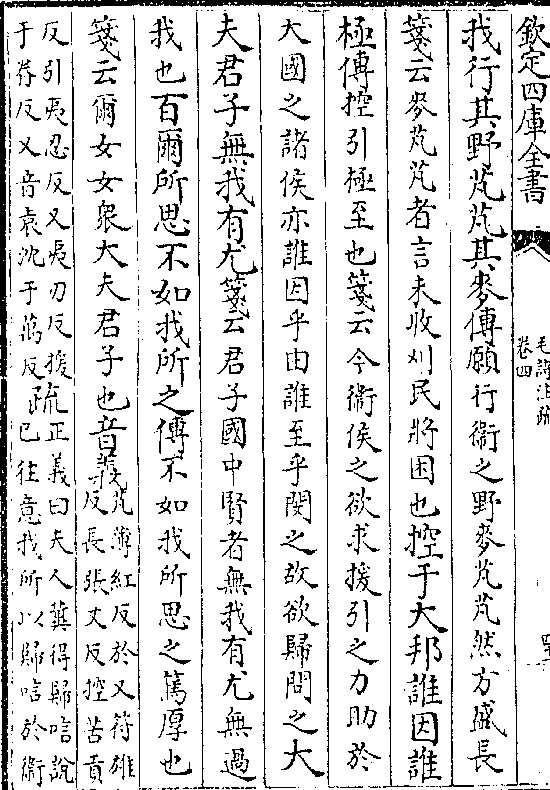 欽定四庫全書
毛詩注疏
卷四
我行其野芃芃其麥傳願行衛之野麥芃芃然方盛長
箋云麥芃芃者言未收刈民將困也控于大邦誰因誰
極傳控引極至也箋云今衛侯之欲求援引之力助於
大國之諸侯亦誰因乎由誰至乎閔之故欲歸問之大
夫君子無我有尤箋云君子國中賢者無我有尤無過
我也百爾所思不如我所之傳不如我所思之篤厚也
箋云爾女女衆大夫君子也音義芃薄紅反於又符雄
反長張丈反控苦貢
反引夷忍反又夷刃反援
于眷反又音袁沈于萬反疏正義曰夫人冀得歸唁說
已往意我所以歸唁於衛